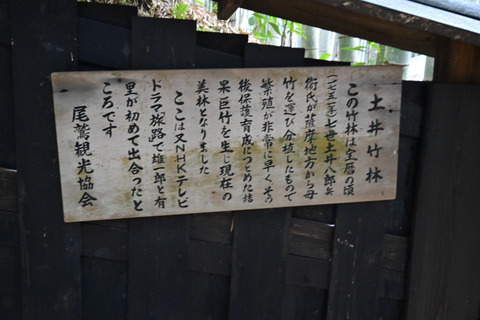 土井竹林
この竹林は宝暦の頃
(一七五一年)七世土井八郎兵
衛氏が薩摩地方から母
竹を運び分植したもので
繁殖が非常に早くその
後保護育成につとめた結
果巨竹を生じ現在の
美林となりました
ここは又NHKテレビ
ドラマ旅路で雄一郎と有
里が初めて出合ったと
ころです
尾鷲観光協会